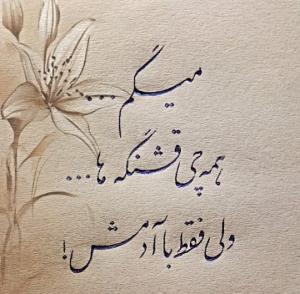 میگم ...
همه چی قشنگه ها ...
ولی فقط با آدمش !